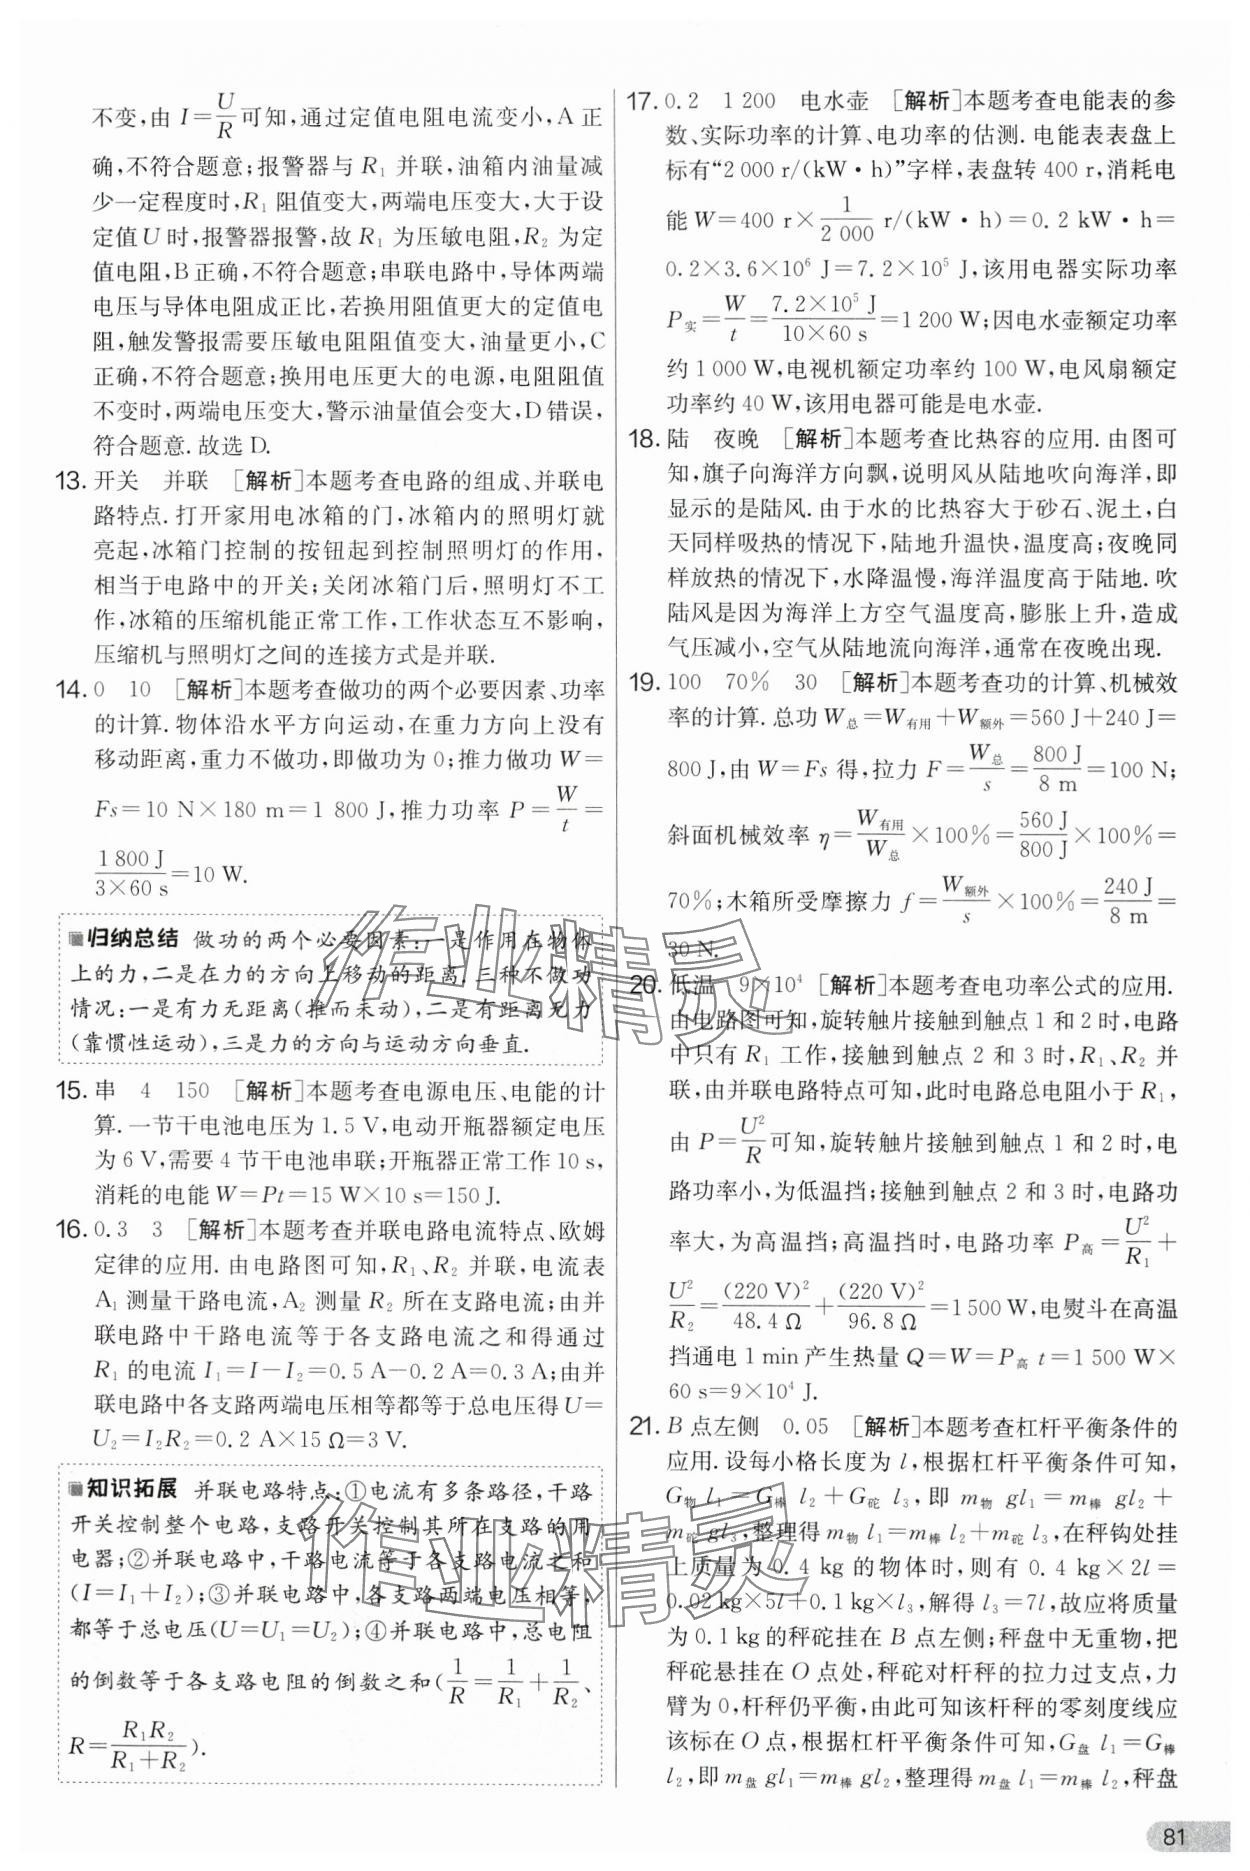 不变,由 I=U/R可知,通过定值电阻电流变小,A 正
确,不符合题意;报警器与 R₁ 并联,油箱内油量减
少一定程度时,R₁ 阻值变大,两端电压变大,大于设
定值 U 时,报警器报警,故 R₁ 为压敏电阻,R₂ 为定
值电阻,B 正确,不符合题意;串联电路中,导体两端
电压与导体电阻成正比,若换用阻值更大的定值电
阻,触发警报需要压敏电阻阻值变大,油量更小,C
正确,不符合题意;换用电压更大的电源,电阻阻值
不变时,两端电压变大,警示油量值会变大,D 错误,
符合题意. 故选 D.
13. 开关 并联 [解析]本题考查电路的组成、并联电
路特点. 打开家用电冰箱的门,冰箱内的照明灯就
亮起,冰箱门控制的按钮起到控制照明灯的作用,
相当于电路中的开关;关闭冰箱门后,照明灯不工
作,冰箱的压缩机能正常工作,工作状态互不影响,
压缩机与照明灯之间的连接方式是并联.
14. 0 10 [解析]本题考查做功的两个必要因素、功率
的计算. 物体沿水平方向运动,在重力方向上没有
移动距离,重力不做功,即做功为 0;推力做功 W=
Fs=10 N×180 m=1 800 J,推力功率 P=W/t=
1 800 J/(3×60 s)=10 W.
归纳总结 做功的两个必要因素:一是作用在物体
上的力,二是在力的方向上移动的距离.三种不做功
情况:一是有力无距离(推而未动),二是有距离无力
(靠惯性运动),三是力的方向与运动方向垂直.
15. 串 4 150 [解析]本题考查电源电压、电能的计
算. 一节干电池电压为 1.5 V,电动开瓶器额定电压
为 6 V,需要 4 节干电池串联;开瓶器正常工作 10 s,
消耗的电能 W=Pt=15 W×10 s=150 J.
16. 0.3 3 [解析]本题考查并联电路电流特点、欧姆
定律的应用. 由电路图可知,R₁、R₂ 并联,电流表
A₁ 测量干路电流,A₂ 测量 R₂ 所在支路电流;由并
联电路中干路电流等于各支路电流之和得通过
R₁ 的电流 I₁=I-I₂=0.5 A-0.2 A=0.3 A;由并
联电路中各支路两端电压相等都等于总电压得 U=
U₂=I₂R₂=0.2 A×15 Ω=3 V.
知识拓展 并联电路特点:①电流有多条路径,干路
开关控制整个电路,支路开关控制其所在支路的用
电器;②并联电路中,干路电流等于各支路电流之和
(I=I₁+I₂);③并联电路中,各支路两端电压相等,
都等于总电压(U=U₁=U₂);④并联电路中,总电阻
的倒数等于各支路电阻的倒数之和(1/R=1/R₁+1/R₂、
R=R₁R₂/(R₁+R₂)).
17. 0.2 1 200 电水壶 [解析]本题考查电能表的参
数、实际功率的计算、电功率的估测. 电能表表盘上
标有“2 000 r/(kW·h)”字样,表盘转 400 r,消耗电
能 W=400 r×1/2 000 r/(kW·h)=0.2 kW·h=
0.2×3.6×10⁶ J=7.2×10⁵ J,该用电器实际功率
P实=W/t=7.2×10⁵ J/(10×60 s)=1 200 W;因电水壶额定功率
约 1 000 W,电视机额定功率约 100 W,电风扇额定
功率约 40 W,该用电器可能是电水壶.
18. 陆 夜晚 [解析]本题考查比热容的应用. 由图可
知,旗子向海洋方向飘,说明风从陆地吹向海洋,即
显示的是陆风. 由于水的比热容大于砂石、泥土,白
天同样吸热的情况下,陆地升温快,温度高;夜晚同
样放热的情况下,水降温慢,海洋温度高于陆地. 吹
陆风是因为海洋上方空气温度高,膨胀上升,造成
气压减小,空气从陆地流向海洋,通常在夜晚出现.
19. 100 70% 30 [解析]本题考查功的计算、机械效
率的计算. 总功 W总=W有用+W额外=560 J+240 J=
800 J,由 W=Fs 得,拉力 F=W总/s=800 J/8 m=100 N;
斜面机械效率 η=W有用/W总×100%=560 J/800 J×100%=
70%;木箱所受摩擦力 f=W额外/s×100%=240 J/8 m=
30 N.
20. 低温 9×10⁴ [解析]本题考查电功率公式的应用.
由电路图可知,旋转触片接触到触点 1 和 2 时,电路
中只有 R₁ 工作,接触到触点 2 和 3 时,R₁、R₂ 并
联,由并联电路特点可知,此时电路总电阻小于 R₁,
由 P=U²/R可知,旋转触片接触到触点 1 和 2 时,电
路功率小,为低温挡;接触到触点 2 和 3 时,电路功
率大,为高温挡;高温挡时,电路功率 P高=U²/R₁+
U²/R₂=(220 V)²/48.4 Ω+(220 V)²/96.8 Ω=1 500 W,电熨斗在高温
挡通电 1 min 产生热量 Q=W=P高 t=1 500 W×
60 s=9×10⁴ J.
21. B 点左侧 0.05 [解析]本题考查杠杆平衡条件的
应用. 设每小格长度为 l,根据杠杆平衡条件可知,
G物 l₁=G棒 l₂+G砣 l₃,即 m物 gl₁=m棒 gl₂+
m砣 gl₃,整理得 m物 l₁=m棒 l₂+m砣 l₃,在秤钩处挂
上质量为 0.4 kg 的物体时,则有 0.4 kg×2l=
0.02 kg×5l+0.1 kg×l₃,解得 l₃=7l,故应将质量
为 0.1 kg 的秤砣挂在 B 点左侧;秤盘中无重物,把
秤砣悬挂在 O 点处,秤砣对杆秤的拉力过支点,力
臂为 0,杆秤仍平衡,由此可知该杆秤的零刻度线应
该标在 O 点,根据杠杆平衡条件可知,G盘 l₁=G棒
l₂,即 m盘 gl₁=m棒 gl₂,整理得 m盘 l₁=m棒 l₂,秤盘
81
作业精灵
作业精灵